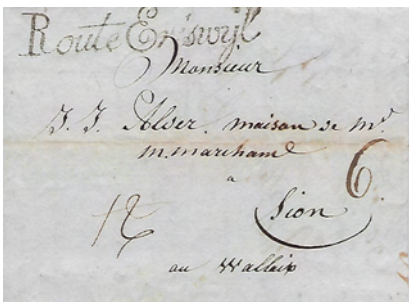 Route Eriswyl
Monsieur
J. J. Alser. maison de Mr.
m. marchand
6
a
Sion
12
au Wallais